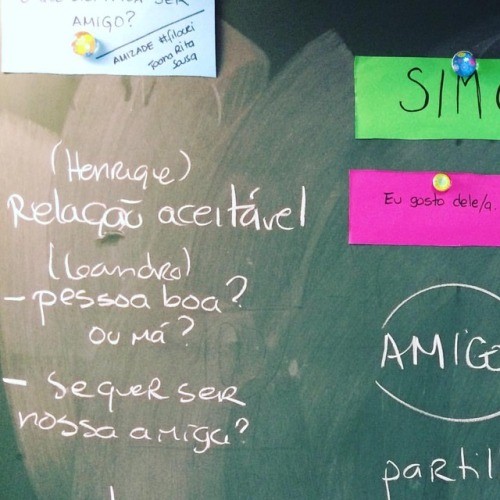 SER
AMIGO?
AMIZADE #filocri
Joana Rita
Sousa
(Henrique)
Relação aceitável
(Leandro)
- pessoa boa?
ou má?
- Se quer ser
nossa amiga?
SIM
Eu gosto dele/a.
AMIGO
partil